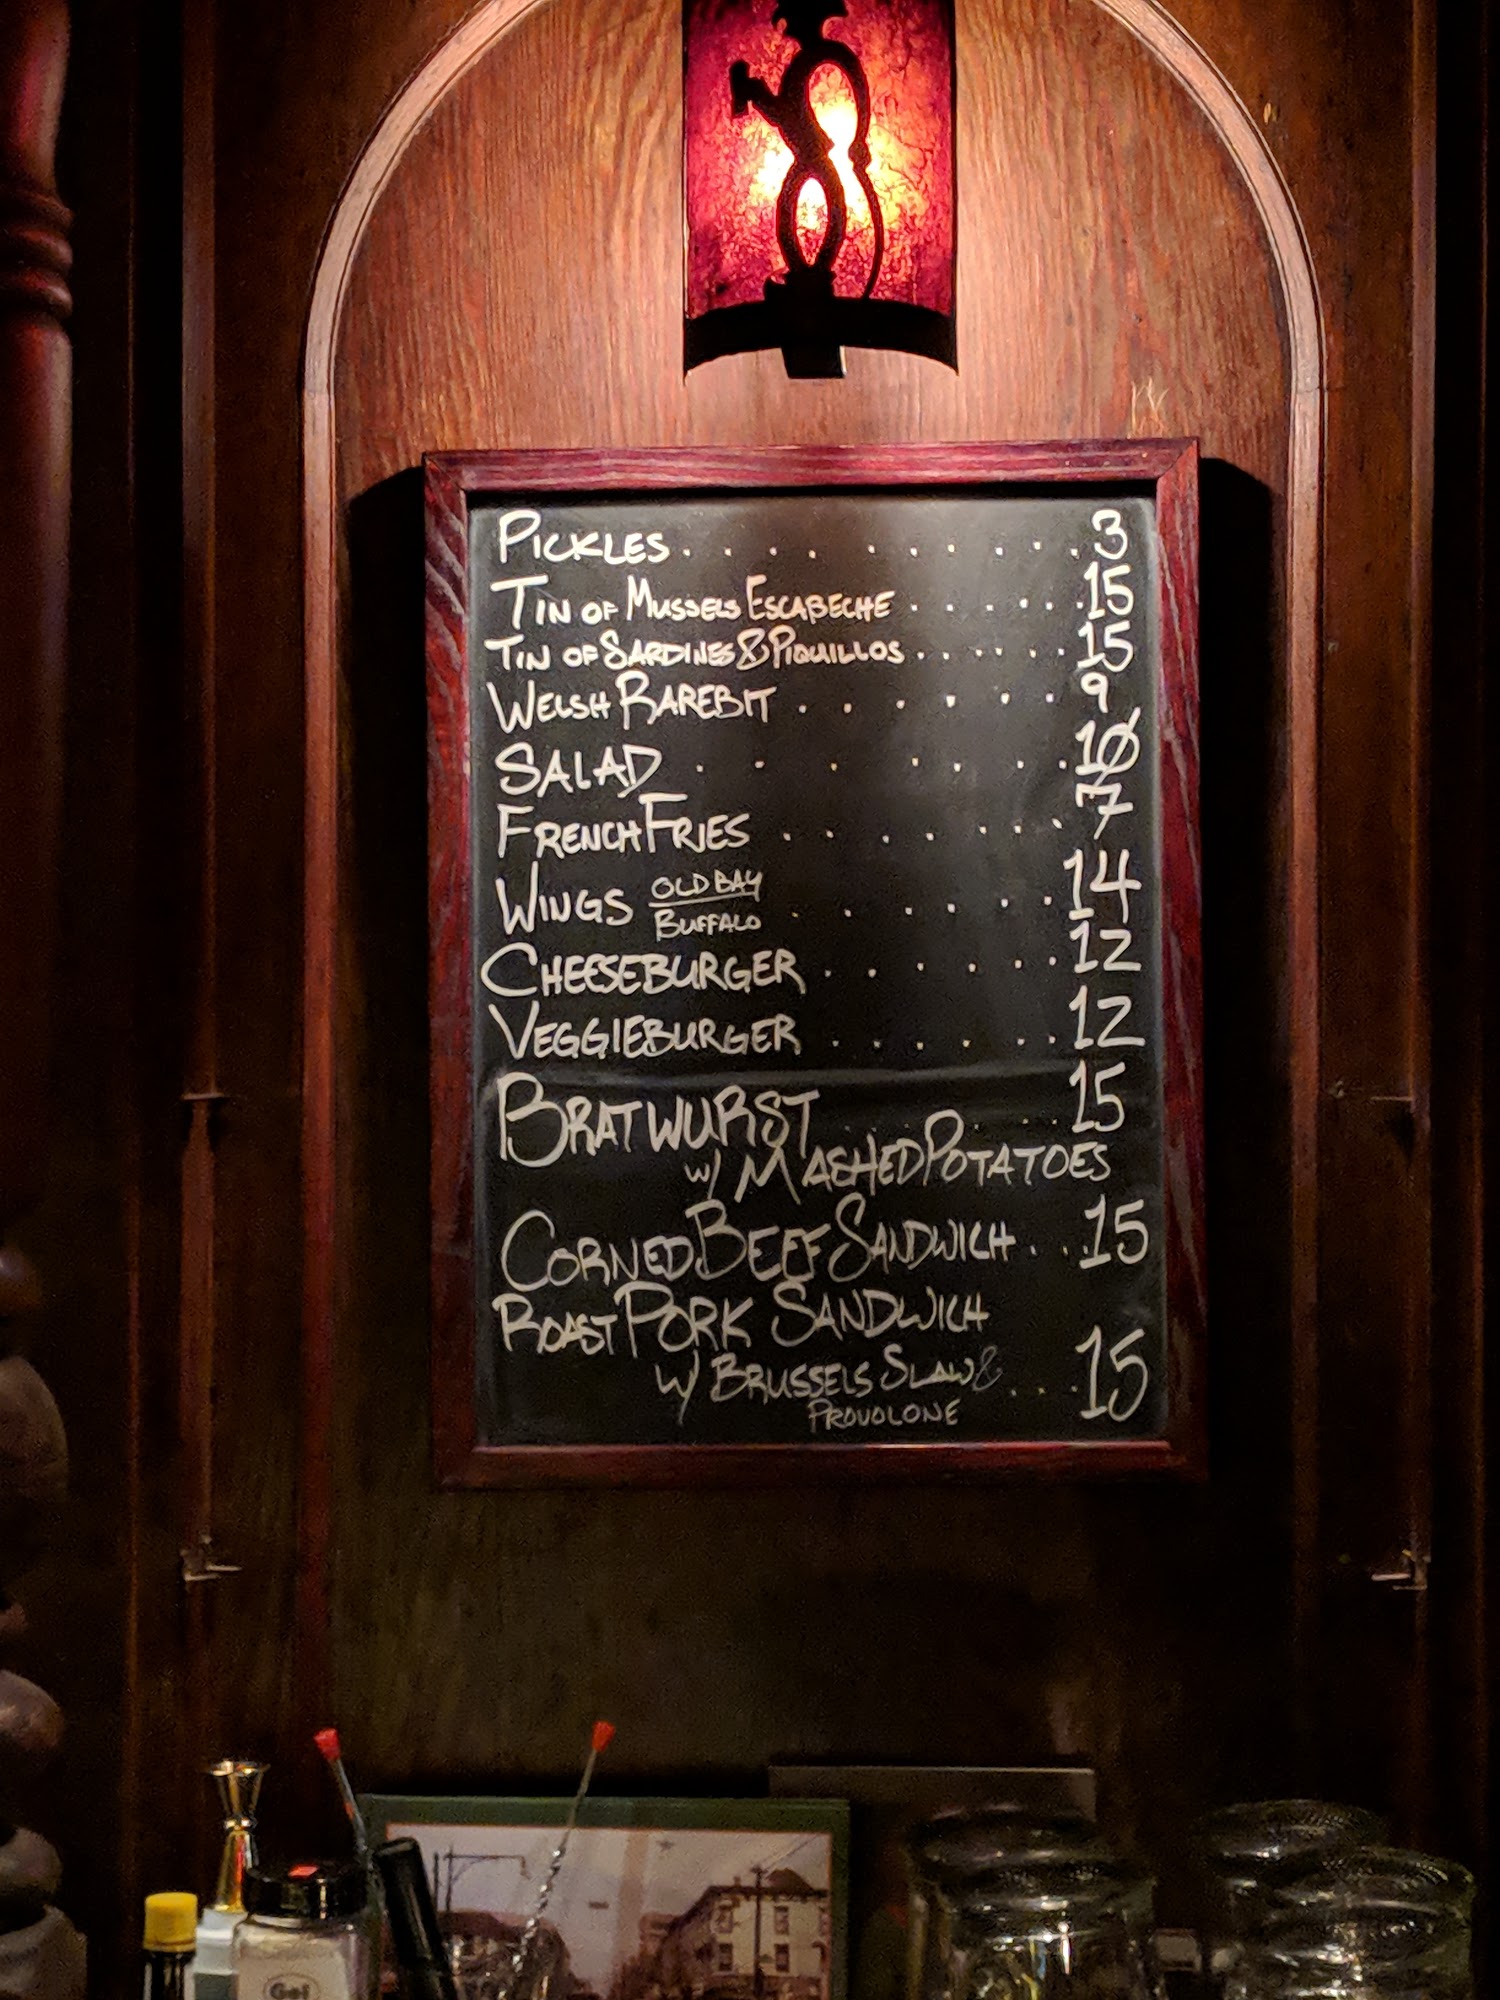 PICKLES . . . . . . . . . . . 3
TIN OF MUSSELS ESCABECHE . . . . . . 15
TIN OF SARDINES & PIQUILLOS . . . . . . 15
WELSH RAREBIT . . . . . . . 9
SALAD . . . . . . . . 10
FRENCH FRIES . . . . . . . . 7
WINGS OLD BAY
BUFFALO . . . . . . . 14
CHEESEBURGER . . . . . . . 12
VEGGIEBURGER . . . . . . 12
BRATWURST . . . . . . 15
W/ MASHED POTATOES
CORNED BEEF SANDWICH . . . 15
ROAST PORK SANDWICH
W/ BRUSSELS SLAW & . . . . 15
PROVOLONE